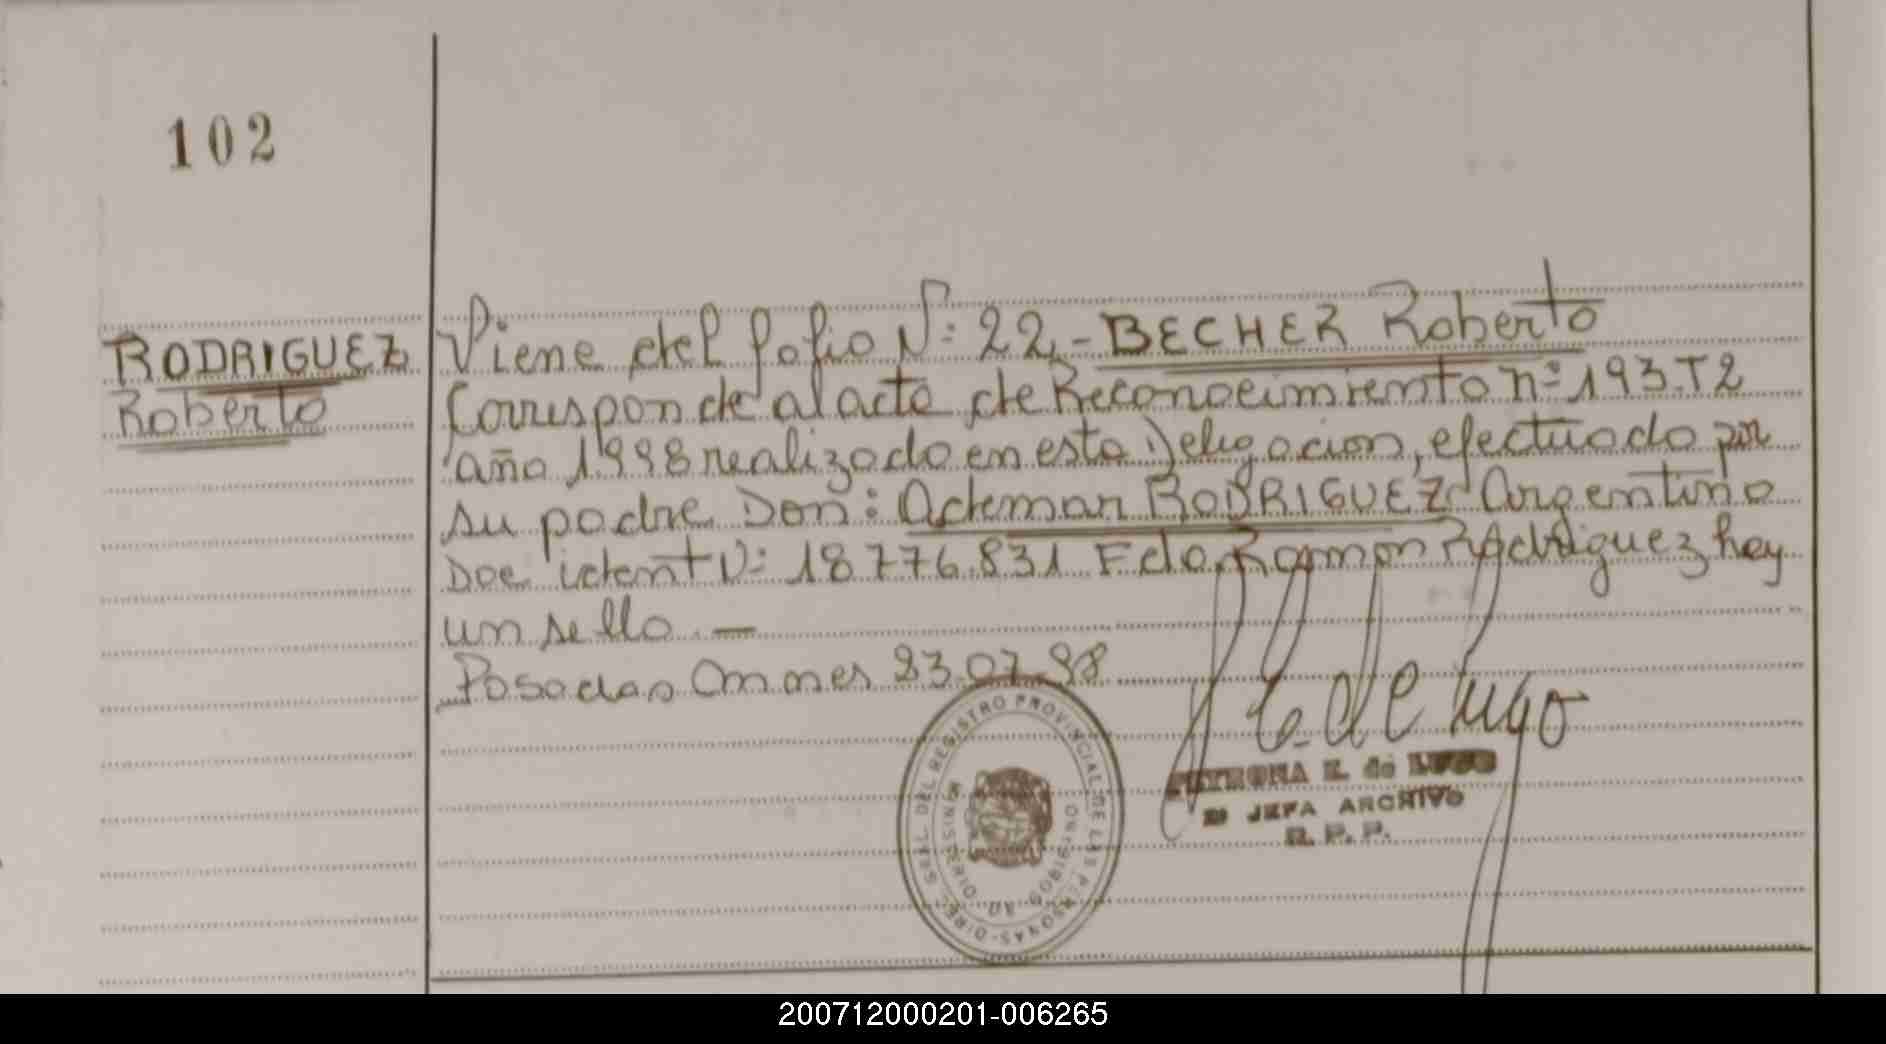 102
RODRIGUEZ
Roberto
Viene del folio N: 22.- BECHER Roberto
Corresponde al acta de Reconocimiento nº 193.T2
año 1998 realizado en esta Delegacion, efectuado por
su padre Don: Ademar RODRIGUEZ Argentino
Doc ident N: 18.776.831 Fdo. Ramon Rodriguez hay
un sello. —
Posadas Misiones 23.07.98
DIREC. GRAL. DEL REGISTRO PROVINCIAL DE LAS PERSONAS
MISIONES
PETRONA E. de LUGO
JEFA ARCHIVO
R. P. P.
200712000201-006265